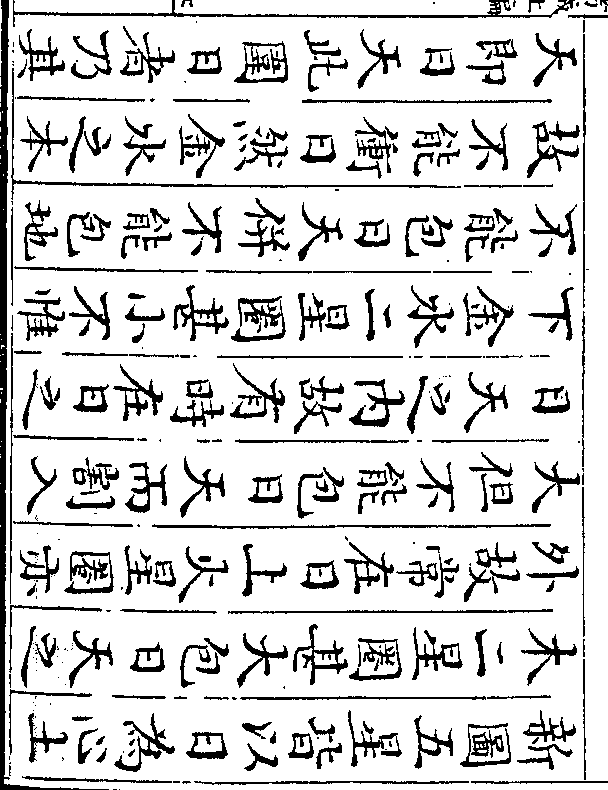 新圖五星皆以日為心土
木二星圈甚大包日天之
外故常在日上火星圈亦
大但不能包日天而割入
日天之内故有時在日之
下金水二星圈甚小不惟
不能包日天併不能包地
故不能衝日然金水之本
天即日天此圍日者乃其